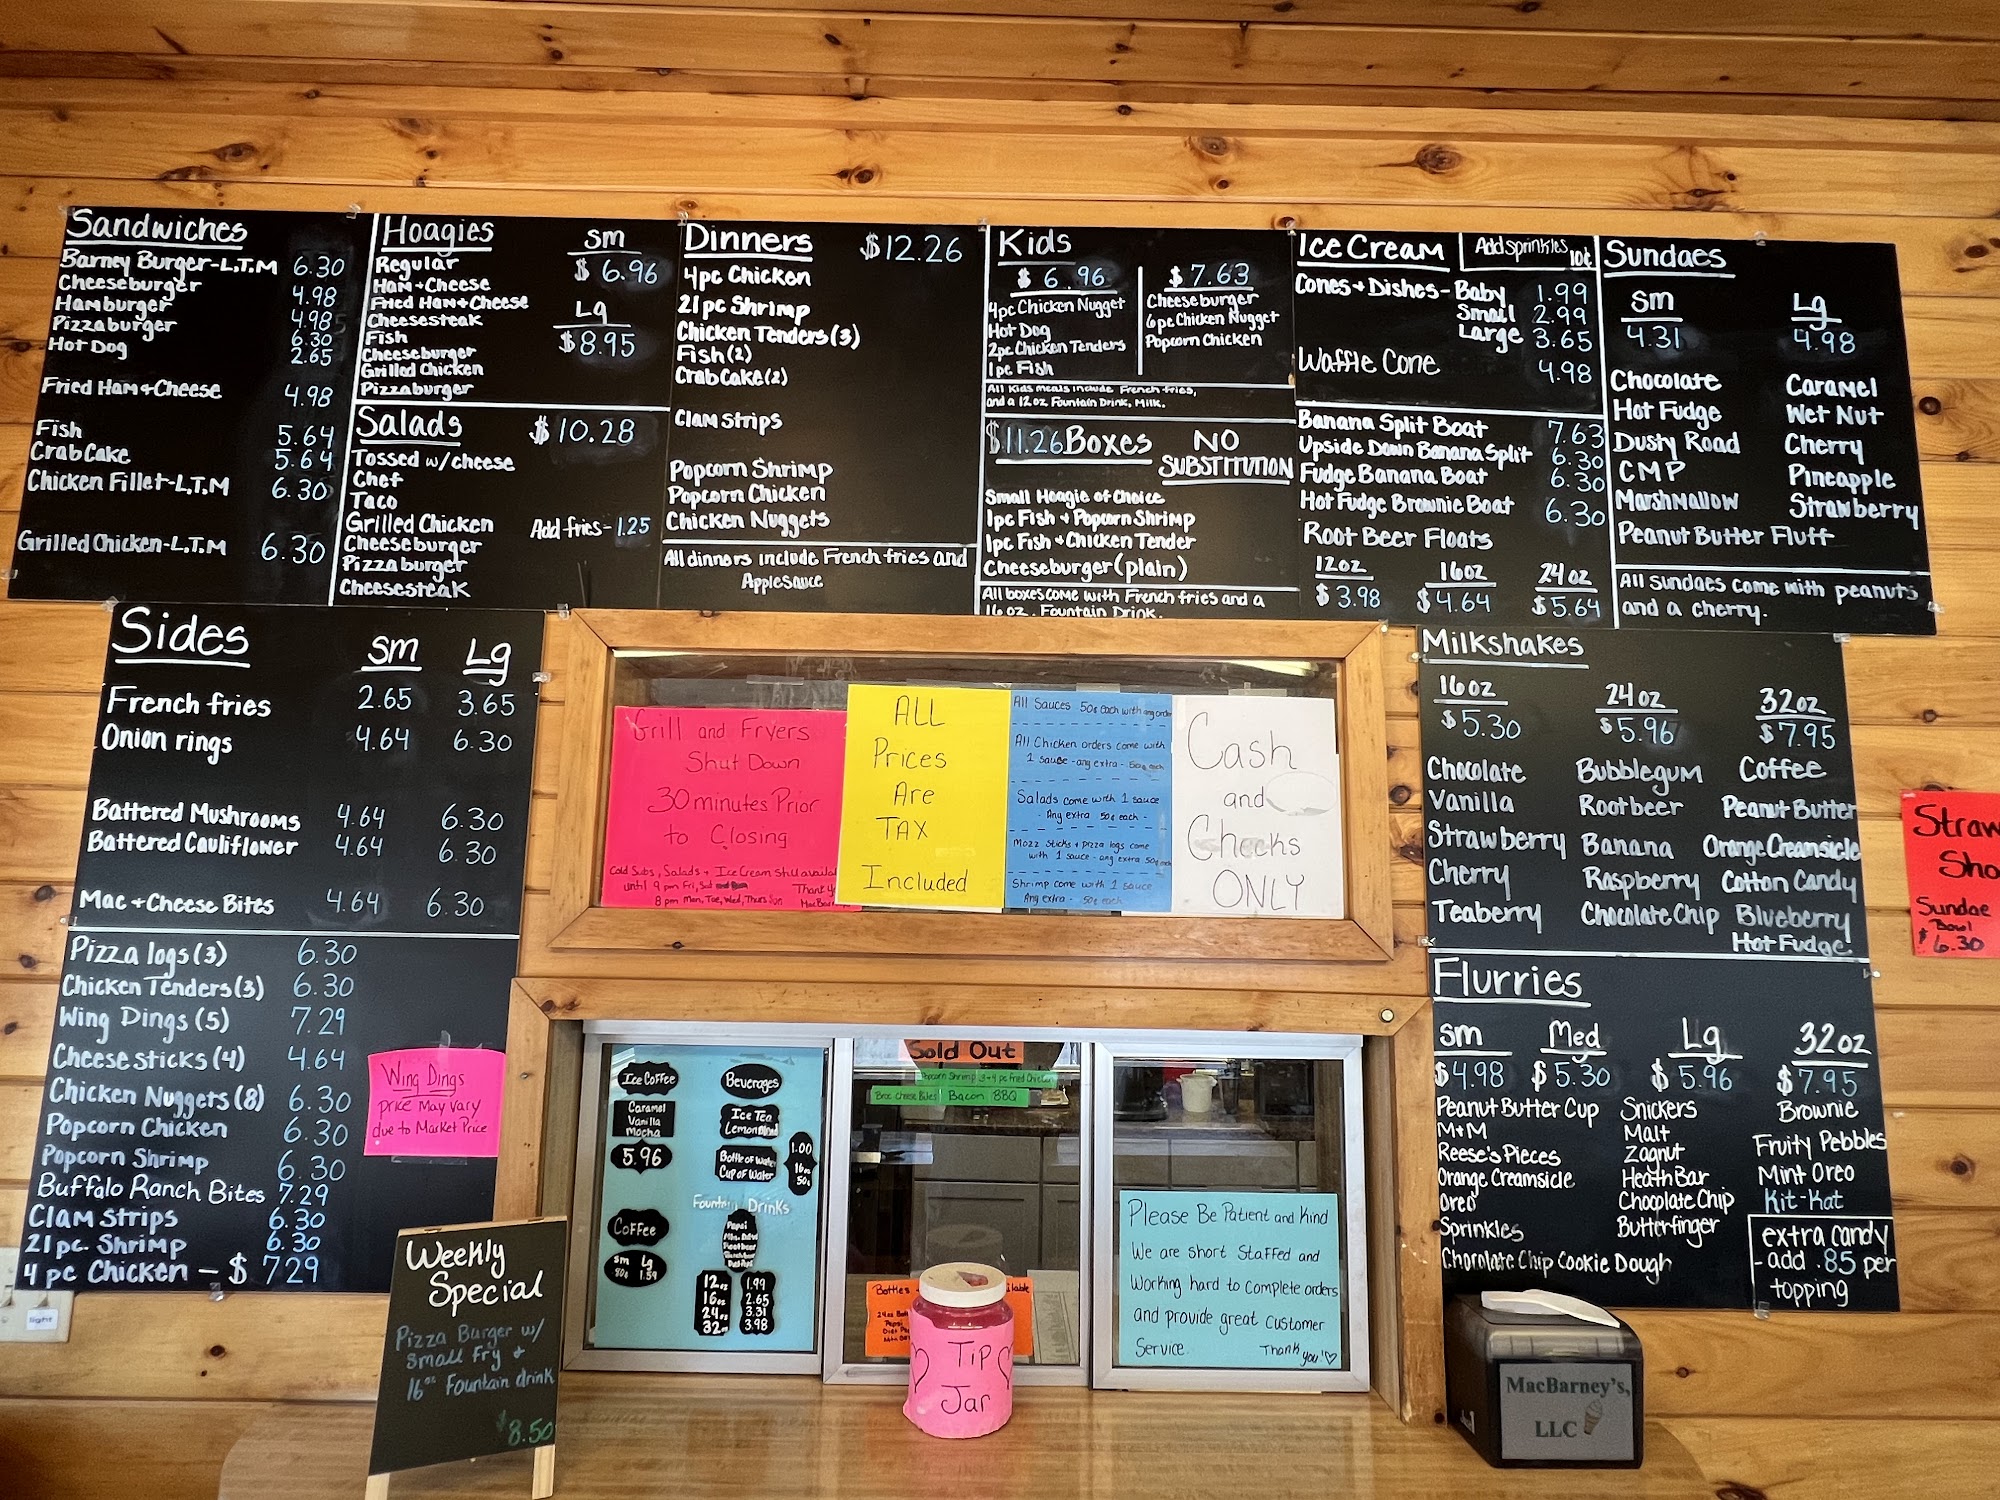 Sandwiches
Barney Burger-L,T,M 6.30
Cheeseburger 4.98
Hamburger 4.98
Pizzaburger 6.30
Hot Dog 2.65
Fried Ham+Cheese 4.98
Fish 5.64
Crab Cake 5.64
Chicken Fillet-L,T,M 6.30
Grilled Chicken-L,T,M 6.30
Hoagies
sm
$6.96
Lg
$8.95
Regular
Ham+Cheese
Fried Ham+Cheese
Cheesesteak
Fish
Cheeseburger
Grilled Chicken
Pizzaburger
Salads $10.28
Tossed w/cheese
Chef
Taco
Grilled Chicken
Add fries-1.25
Cheeseburger
Pizzaburger
Cheesesteak
Dinners $12.26
4pc Chicken
21pc Shrimp
Chicken Tenders(3)
Fish(2)
Crab Cake(2)
Clam Strips
Popcorn Shrimp
Popcorn Chicken
Chicken Nuggets
All dinners include French fries and
Applesauce
Kids
$6.96
4pc Chicken Nugget
Hot Dog
2pc Chicken Tenders
1pc Fish
$7.63
Cheeseburger
6pc Chicken Nugget
Popcorn Chicken
All Kids meals include French fries,
and a 12oz Fountain Drink, Milk.
$11.26 Boxes NO
SUBSTITUTION
Small Hoagie of Choice
1pc Fish + Popcorn Shrimp
1pc Fish + Chicken Tender
Cheeseburger(plain)
All boxes come with French fries and a
16oz. Fountain Drink.
Ice Cream
Add sprinkles
10¢
Cones+Dishes-Baby 1.99
Small 2.99
Large 3.65
Waffle Cone 4.98
Banana Split Boat 7.63
Upside Down Banana Split 6.30
Fudge Banana Boat 6.30
Hot Fudge Brownie Boat 6.30
Root Beer Floats
12oz 16oz 24oz
$3.98 $4.64 $5.64
Sundaes
sm Lg
4.31 4.98
Chocolate Caramel
Hot Fudge Wet Nut
Dusty Road Cherry
CMP Pineapple
Marshmallow Strawberry
Peanut Butter Fluff
All sundaes come with peanuts
and a cherry.
Sides sm Lg
French fries 2.65 3.65
Onion rings 4.64 6.30
Battered Mushrooms 4.64 6.30
Battered Cauliflower 4.64 6.30
Mac+Cheese Bites 4.64 6.30
Pizza logs(3) 6.30
Chicken Tenders(3) 6.30
Wing Dings(5) 7.29
Cheese sticks(4) 4.64
Chicken Nuggets(8) 6.30
Popcorn Chicken 6.30
Popcorn Shrimp 6.30
Buffalo Ranch Bites 7.29
Clam Strips 6.30
21 pc. Shrimp 6.30
4 pc Chicken - $729
Wing Dings
price May vary
due to Market Price
Grill and Fryers
Shut Down
30 minutes Prior
to Closing
Cold Subs, Salads + Ice Cream Still
until 9 pm Fri, Sat
8 pm Mon, Tue, Wed, Thurs Sun
ALL
Prices
Are
TAX
Included
All Sauces 50¢ each with any order
All Chicken orders come with
1 sauce - any extra - 50¢ each
Salads come with 1 sauce
- Any extra 50¢ each -
Mozz sticks + pizza logs come
with 1 sauce - any extra 50¢
Shrimp come with 1 sauce
Any extra - 50¢ each
Cash
and
Checks
ONLY
Milkshakes
16oz 24oz 32oz
$5.30 $5.96 $7.95
Chocolate Bubblegum Coffee
Vanilla Rootbeer Peanut Butter
Strawberry Banana Orange Creamsicle
Cherry Raspberry Cotton Candy
Teaberry Chocolate Chip Blueberry
Hot Fudge
Straw
Sho
Sundae
Bowl
$6.30
Flurries
sm Med Lg 32oz
$4.98 $5.30 $5.96 $7.95
Peanut Butter Cup Snickers Brownie
M+M Malt Fruity Pebbles
Reese's Pieces Zagnut Mint Oreo
Orange Creamsicle Heath Bar Kit-Kat
Oreo Chocolate Chip
Sprinkles Butterfinger
Chocolate Chip Cookie Dough
extra candy
-add .85 per
topping
Ice Coffee
Caramel
Vanilla
Mocha
5.96
Coffee
sm Lg
80¢ 1.59
Beverages
Ice Tea
Lemon
Bottle of Water 1.00
Cup of Water 16oz
50¢
Fountain Drinks
Pepsi
12oz 1.99
16oz 2.65
24oz 3.31
32oz 3.98
Sold Out
Popcorn Shrimp 3-4 pc Fried Chicken
Broc Cheese Bites Bacon BBQ
Bottles
Please Be Patient and Kind
We are short Staffed and
Working hard to complete orders
and provide great Customer
Service. Thank you!
Tip
Jar
Weekly
Special
Pizza Burger w/
Small Fry +
16oz Fountain drink
$8.50
MacBarney's,
LLC
light